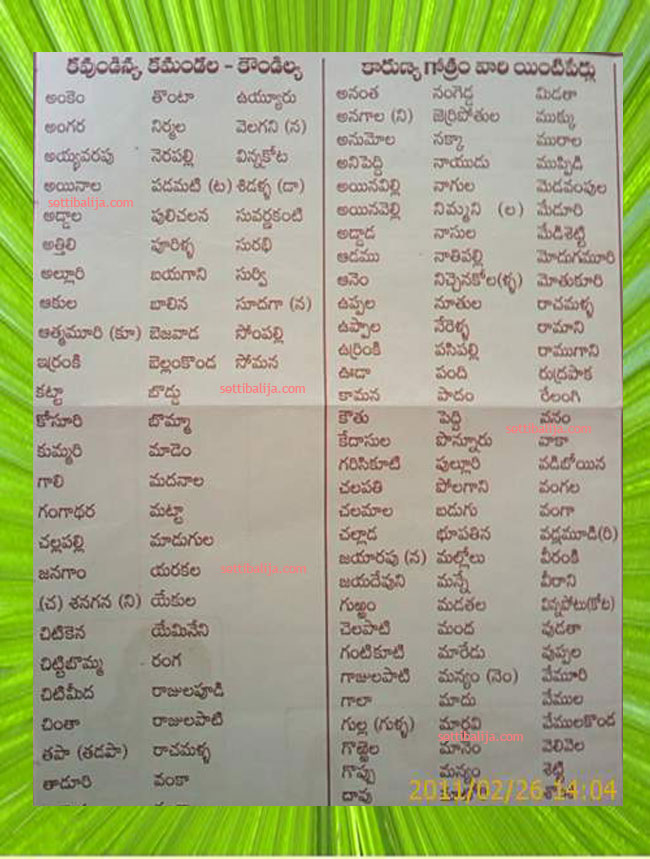 కవుండిన్య కమండల - కౌండిల్య
అంకెం తొంటా ఉయ్యూరు
అంగర నిర్మల వెలగని (న)
అయ్యవరపు నెరపల్లి విన్నకోట
అయినాల పడమటి (ట) శిడళ్ళ (డా)
settibalija.com
అద్దాల పులిచలన సువర్ణకంటి
అత్తిలి పూరిళ్ళ సురభి
అల్లూరి బయగాని సుర్వి
ఆకుల బాలిన సూదగా (న)
ఆత్మమూరి (కూ) బెజవాడ సోంపల్లి
ఇర్రంకి బెల్లంకొండ సోమన
కట్టా బొడ్డు settibalija.com
కోసూరి బొమ్మా
కుమ్మరి మాడెం
గాలి మదనాల
గంగాధర మట్టా
చల్లపల్లి మాడుగుల
జనగాం యరకల settibalija.com
(చ) శనగన (ని) యేకుల
చిటికెన యేమినేని
చిట్టిబొమ్మ రంగ
చిటిమీద రాజులపూడి
చింతా రాజులపాటి
తపా (తడపా) రాచమళ్ళ
తాడూరి వంకా
కారుణ్య గోత్రం వారి యింటిపేర్లు
అనంత నంగెడ్డ మిడతా
అనగాల (ని) జెర్రిపోతుల ముక్కు
అనుమోల నక్కా మురాల
అనిపెద్ది నాయుడు ముప్పిడి
అయినవిల్లి నాగుల మెడవంపుల
అయినవెల్లి నిమ్మని (ల) మేడూరి
అడ్డాడ నాసుల మేడిశెట్టి
ఆడము నాతిపల్లి మోదుగమూరి
ఆనెం నిచ్చెనకోల(ళ్ళ) మోతుకూరి
ఉప్పల నూతుల రాచమళ్ళ
ఉప్పాల నేరెళ్ళ రామాని
ఉర్రింకి పసిపల్లి రాముగాని
ఊడా పంది రుద్రపాక
కామన పాదం రేలంగి
కౌతు పెద్ది వనం
settibalija.com
కేదాసుల పొన్నూరు వాకా
గరిసికూటి పుల్లూరి వడిబోయిన
చలపతి పోలగాని వంగల
చలమాల బడుగు వంగా
చల్లాడ భూపతిన వడ్లమూడి(రి)
జయారపు (న) మల్లోలు వీరంకి
జయదేవుని మన్నే వీరాని
గుజ్జం మడతల విన్నపోటు(కోట)
చెలపాటి మంద వుడతా
గంటికూటి మారేడు వుప్పల
గాజులపాటి మన్యం (నెం) వేమూరి
గాలా మాదు వేముల
గుల్ల (గుళ్ళ) మారవి వేములకొండ
settibalija.com
గొజ్జెల మానెం వెలివెల
గొప్పు మన్యం శెట్టి
దావు
2011/02/26 14:04